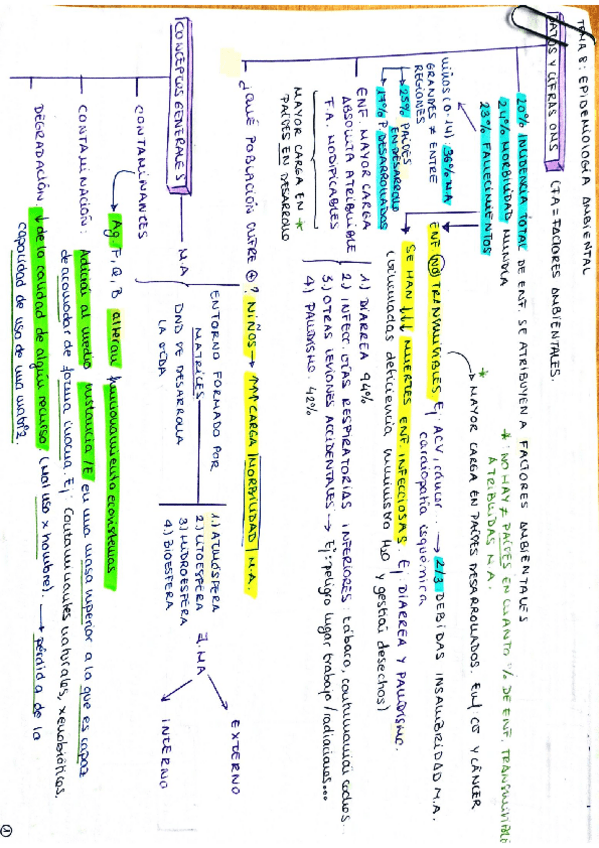 TEMA 8: EPIDEMIOLOGÍA AMBIENTAL
DATOS Y CIFRAS OMS (FA = FACTORES AMBIENTALES.
20% INCIDENCIA TOTAL DE ENF. SE ATRIBUYEN A FACTORES AMBIENTALES
24% MORBILIDAD MUNDIAL
23% FALLECIMIENTOS
* NO HAY ≠ PAÍSES EN CUANTO % DE ENF. TRANSMISIBLES
ATRIBUIDAS M.A.
NIÑOS (0-14) 36% MA
GRANDES ≠ ENTRE
REGIONES
25% PAÍSES
EN DESARROLLO
17% P. DESARROLLADOS
* MAYOR CARGA EN PAÍSES DESARROLLADOS. Enf CV Y CÁNCER
ENF NO TRANSMISIBLES Ej ACV, cáncer... → 2/3 DEBIDAS INSALUBRIDAD M.A.
cardiopatía isquémica
SE HAN ↓↓↓ MUERTES ENF. INFECCIOSAS. Ej: DIARREA Y PALUDISMO.
(vinculadas deficiencia suministro H2O y gestión desechos)
ENF. MAYOR CARGA
ABSOLUTA ATRIBUIBLE
F.A. MODIFICABLES
MAYOR CARGA EN *
PAÍSES EN DESARROLLO
1) DIARREA 94%
2) INFECC. VÍAS RESPIRATORIAS INFERIORES: tabaco, contaminación coches.
3) OTRAS LESIONES ACCIDENTALES → Ej: peligro lugar trabajo / radiaciones...
4) PALUDISMO. 42%
¿QUÉ POBLACIÓN SUFRE ⊕? NIÑOS → ↑↑↑ CARGA MORBILIDAD M.A.
CONCEPTOS GENERALES
M.A
ENTORNO FORMADO POR
MATRICES
DND SE DESARROLLA
LA VIDA
1) ATMÓSFERA
2) LITOESFERA
3) HIDROESFERA
4) BIOESFERA
MA
EXTERNO
INTERNO
CONTAMINANTES
Ag F, Q, B alteran funcionamiento ecosistemas
CONTAMINACIÓN: Adición al medio sustancia /E en una masa superior a la que es capaz
de acomodar de forma inocua. Ej: Contaminantes naturales, xenobióticos.
DEGRADACIÓN ↓ de la calidad de algún recurso (mal uso x hombre). → pérdida de la
capacidad de uso de una matriz.
1